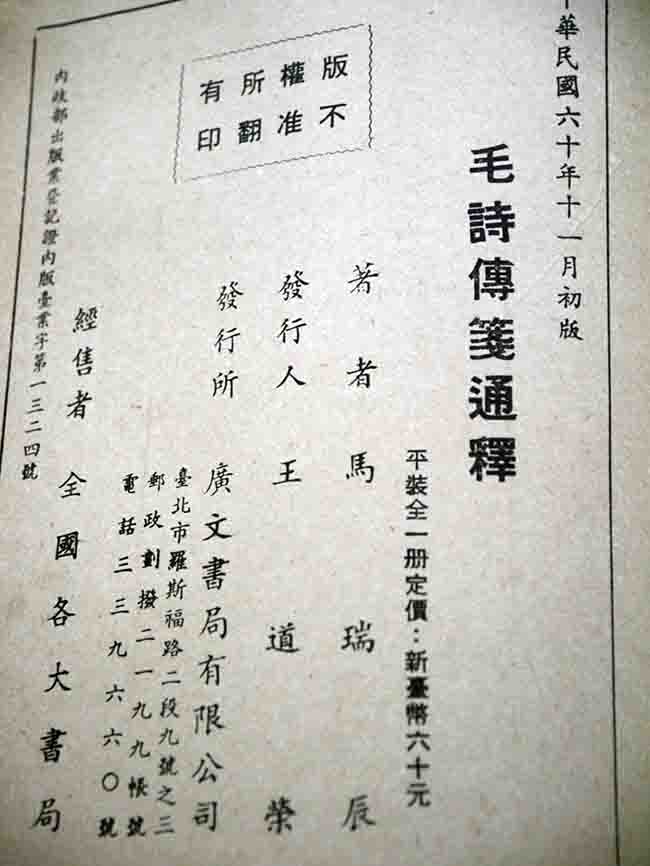 中華民國六十年十一月初版
毛詩傳箋通釋
平裝全一册定價：新臺幣六十元
著者 馬瑞辰
發行人 王道榮
發行所 廣文書局有限公司
臺北市羅斯福路二段九號之三
郵政劃撥二一九九帳號
電話三三九六六〇號
經售者 全國各大書局
內政部出版業登記證內版臺業字第一三二四號
版權所有
不准翻印